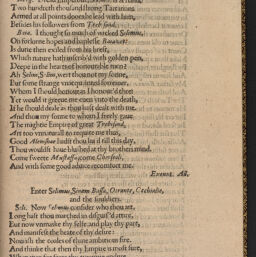 Two hundreth thousand strong Tartarians
Armed at all points does he lead with him,
Besides his followers from Trebisond.
Beza. I thought so much of wicked Selimus,
Oh forlorne hopes and haplesse Baiazet.
Is dutie then exiled from his brest,
Which nature hath inscrib'd with golden pen,
Deepe in the hearts of honourable men?
Ah Selim, Selim, wert thou not my sonne,
But some strange vnacquainted forreiner,
Whom I should honour as I honor'd thee:
Yet would it grieue me euen vnto the death,
If he should deale as thou hast dealt with me.
And thou my sonne to whom I freely gaue
The mightie Empire of great Trebisond,
Art too vnnaturall to requite me thus,
Good Alemshae hadst thou liu'd till this day,
Thou wouldst haue blushed at thy brothers mind.
Come sweete Mustaffa, come Cherseoli,
And with some good aduice recomfort me.
Exeunt. All.
Enter Selimus, Sinam Bassa, Otrante, Occhialie,
and the souldiers.
Seli. Now Selimus consider who thou art,
Long hast thou marched in disguis'd attire,
But now vnmaske thy selfe, and play thy part,
And manifest the heate of thy desire:
Nourish the coales of thine ambitious fire.
And thinke that then thy Empire is most sure,